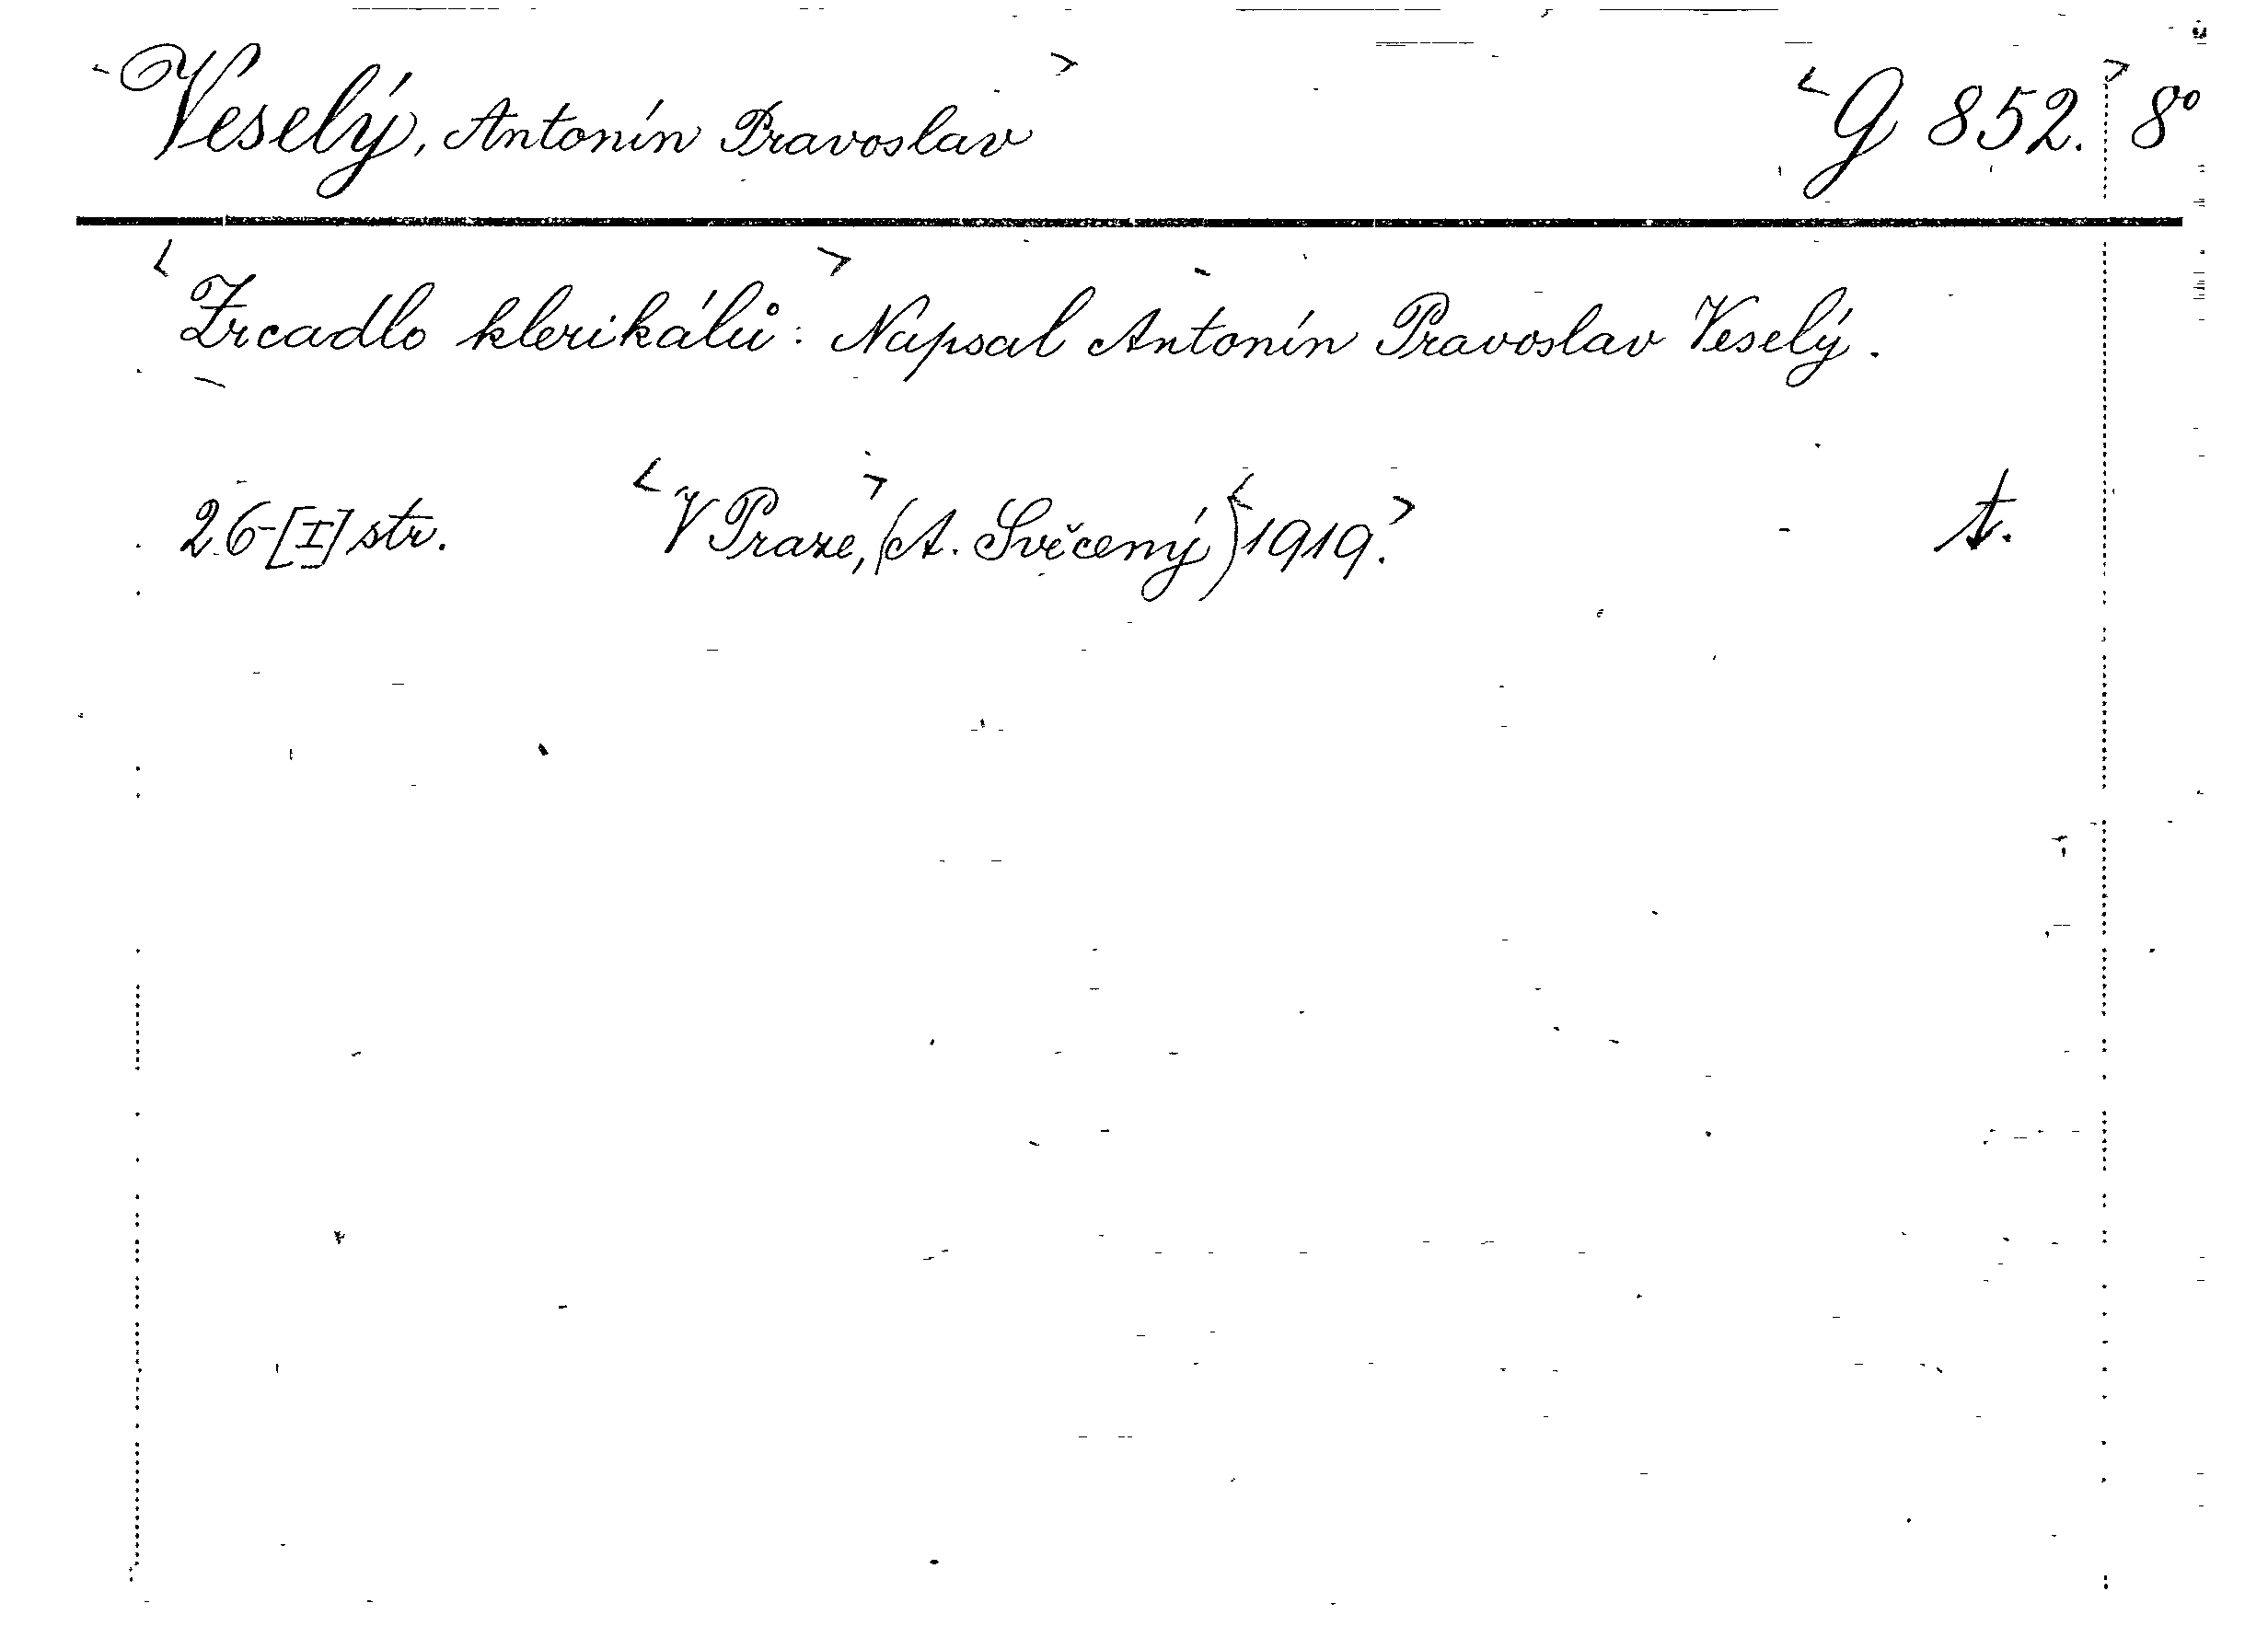 Veselý, Antonín Pravoslav G 852. 8°
Zrcadlo klerikálů: Napsal Antonín Pravoslav Veselý.
26-[I] str. V Praze, (A. Svěcený) 1919. t.